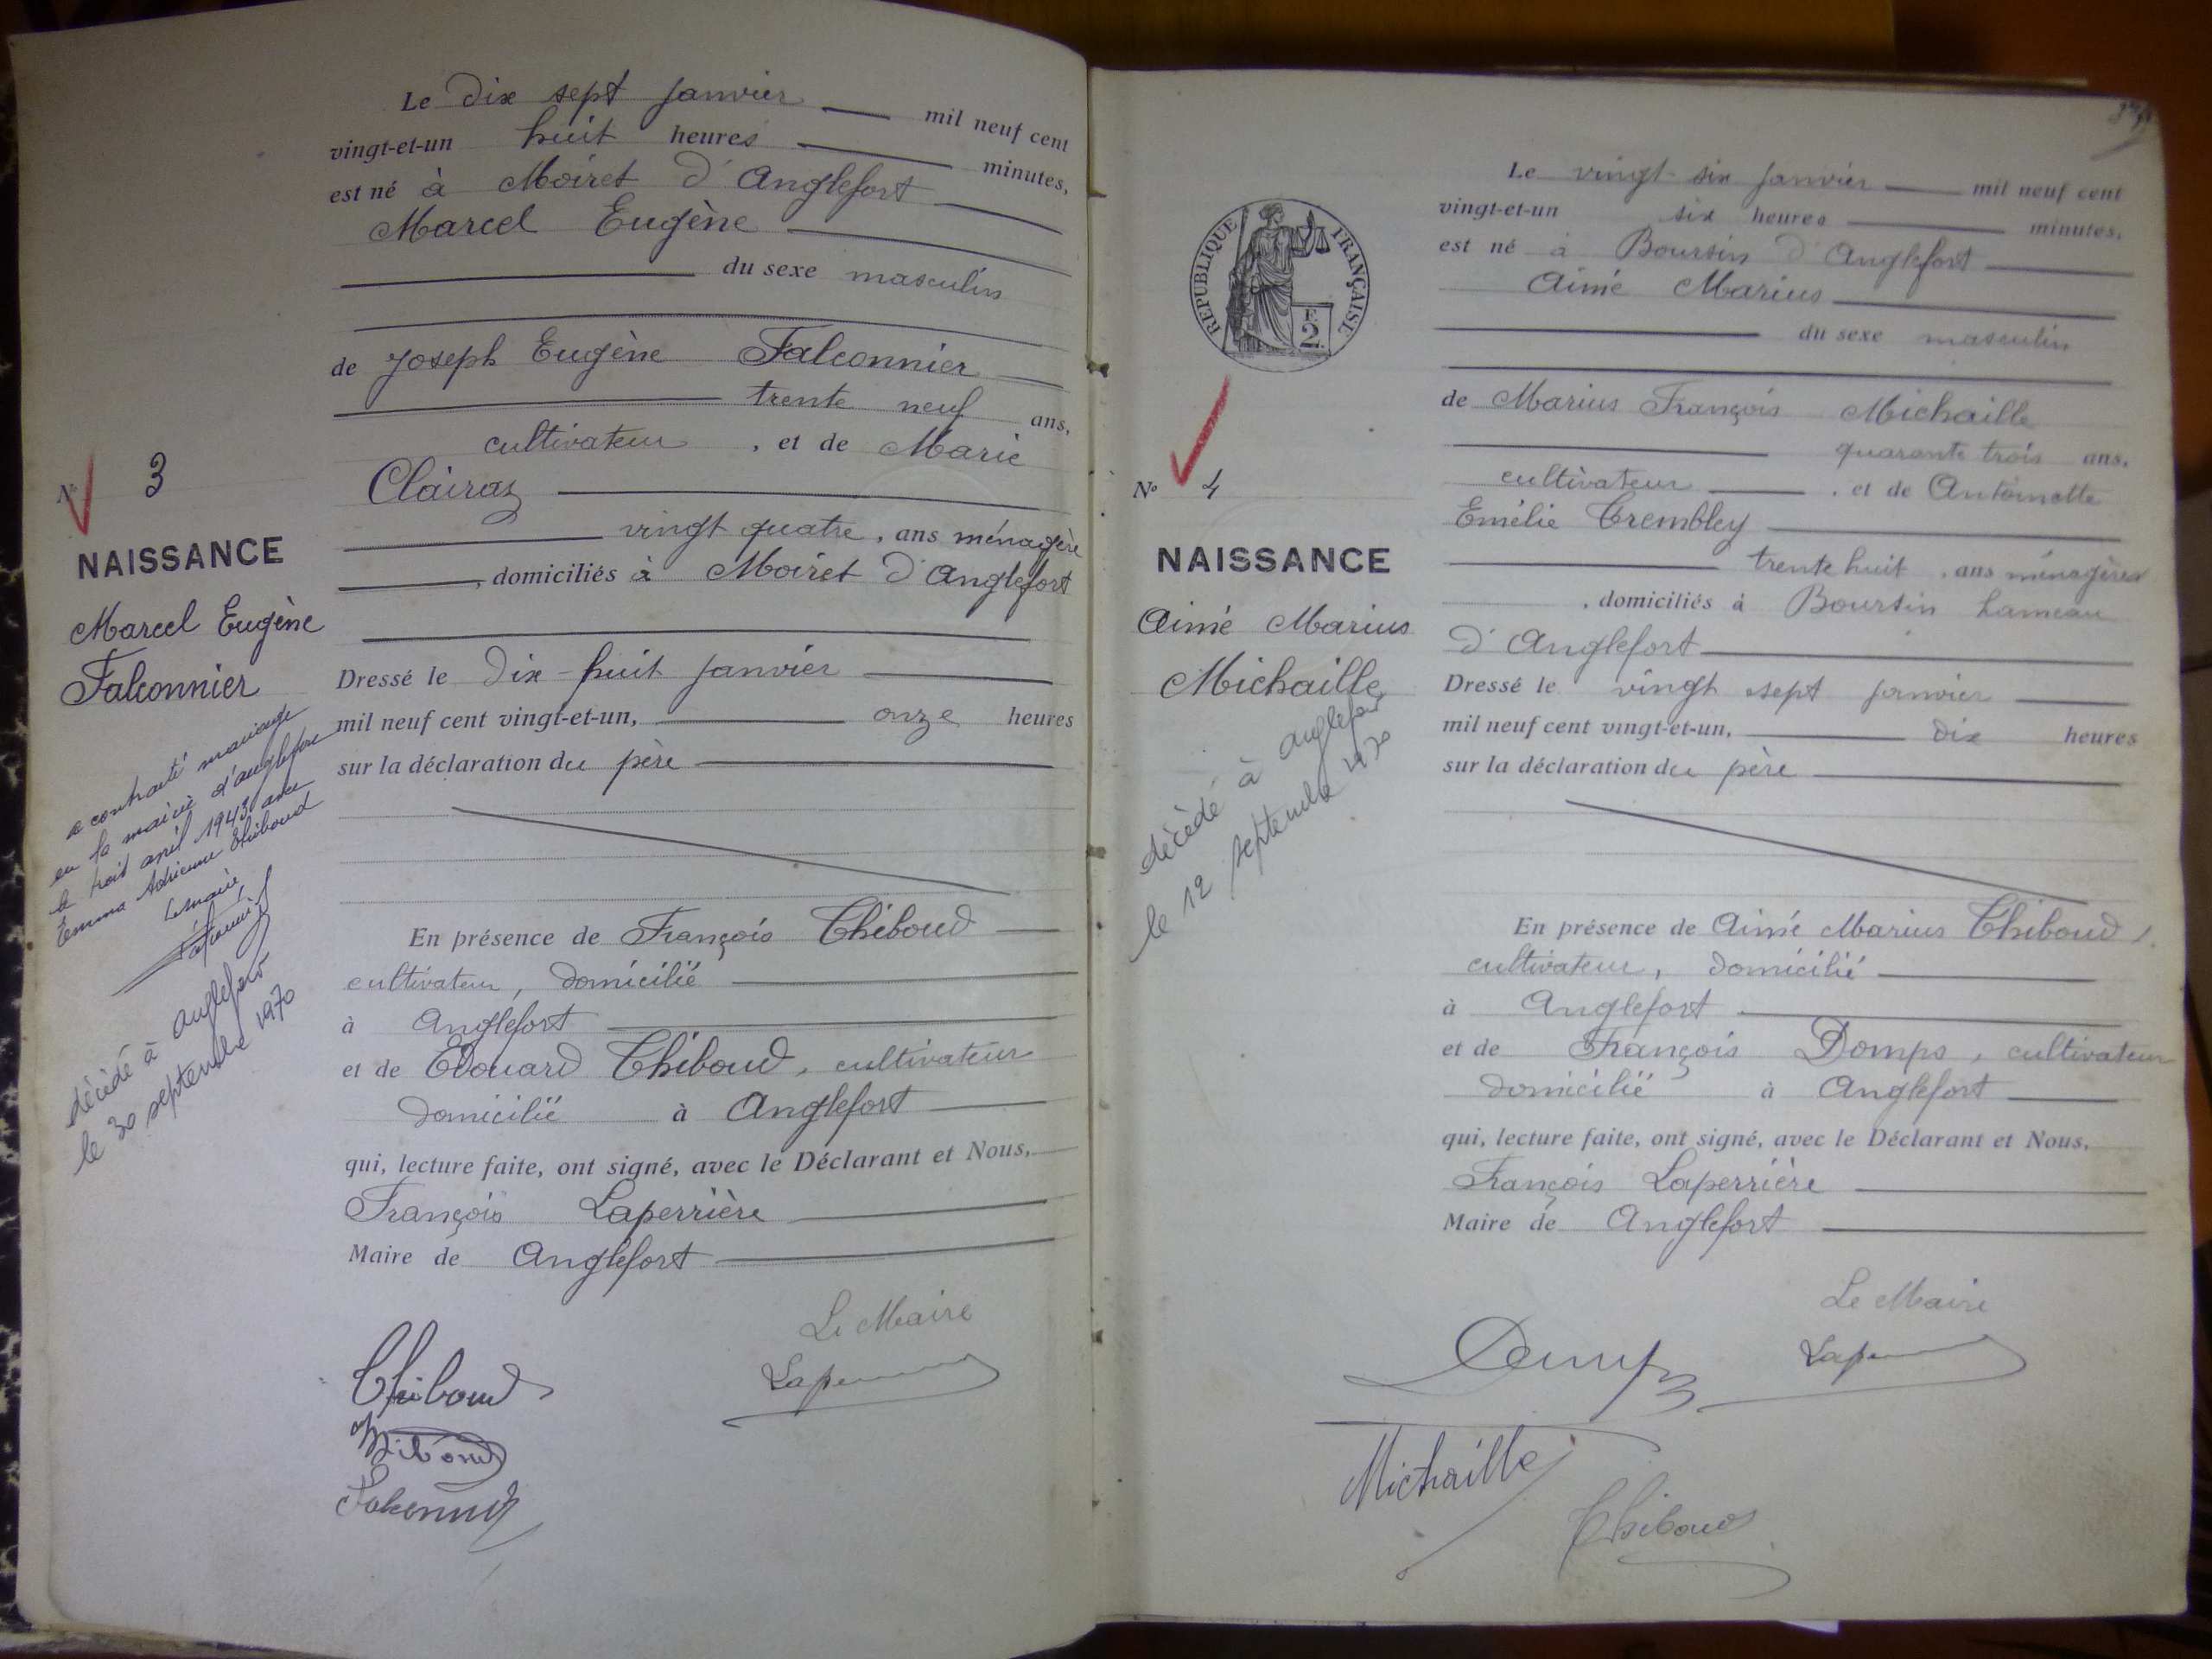 Le dix sept janvier mil neuf cent
vingt-et-un huit heures minutes,
est né à Moiret d'Anglefort
Marcel Eugène
du sexe masculin
de Joseph Eugène Falconnier
trente neuf ans,
cultivateur , et de Marie
Clairaz
vingt quatre , ans ménagère
, domiciliés à Moiret d'Anglefort
Dressé le dix-huit janvier
mil neuf cent vingt-et-un, onze heures
sur la déclaration du père
En présence de François Thiboud
cultivateur, domicilié
à Anglefort
et de Edouard Thiboud, cultivateur
domicilié à Anglefort
qui, lecture faite, ont signé, avec le Déclarant et Nous,
François Laperrière
Maire de Anglefort
Le Maire
Thiboud
Thiboud
N° 3
NAISSANCE
Marcel Eugène
Falconnier
a contracté mariage
en la mairie d'anglefort
le trois avril 1943 avec
Emma Adrienne Thiboud
Le maire,
décédé à anglefort
le 30 septembre 1970
REPUBLIQUE FRANÇAISE
F.
2.
N° 4
NAISSANCE
Aimé Marius
Michaille
décédé à anglefort
le 12 septembre 1970
Le vingt-six janvier mil neuf cent
vingt-et-un six heures minutes,
est né à Boursin d'Anglefort
Aimé Marius
du sexe masculin
de Marius François Michaille
quarante trois ans,
cultivateur , et de Antoinette
Emélie Trembley
trente huit , ans ménagère
, domiciliés à Boursin hameau
d'Anglefort
Dressé le vingt sept janvier
mil neuf cent vingt-et-un, dix heures
sur la déclaration du père
En présence de Aimé Marius Thiboud,
cultivateur, domicilié
à Anglefort
et de François Domps, cultivateur
domicilié à Anglefort
qui, lecture faite, ont signé, avec le Déclarant et Nous,
François Laperrière
Maire de Anglefort
Le Maire
Michaille
Thiboud